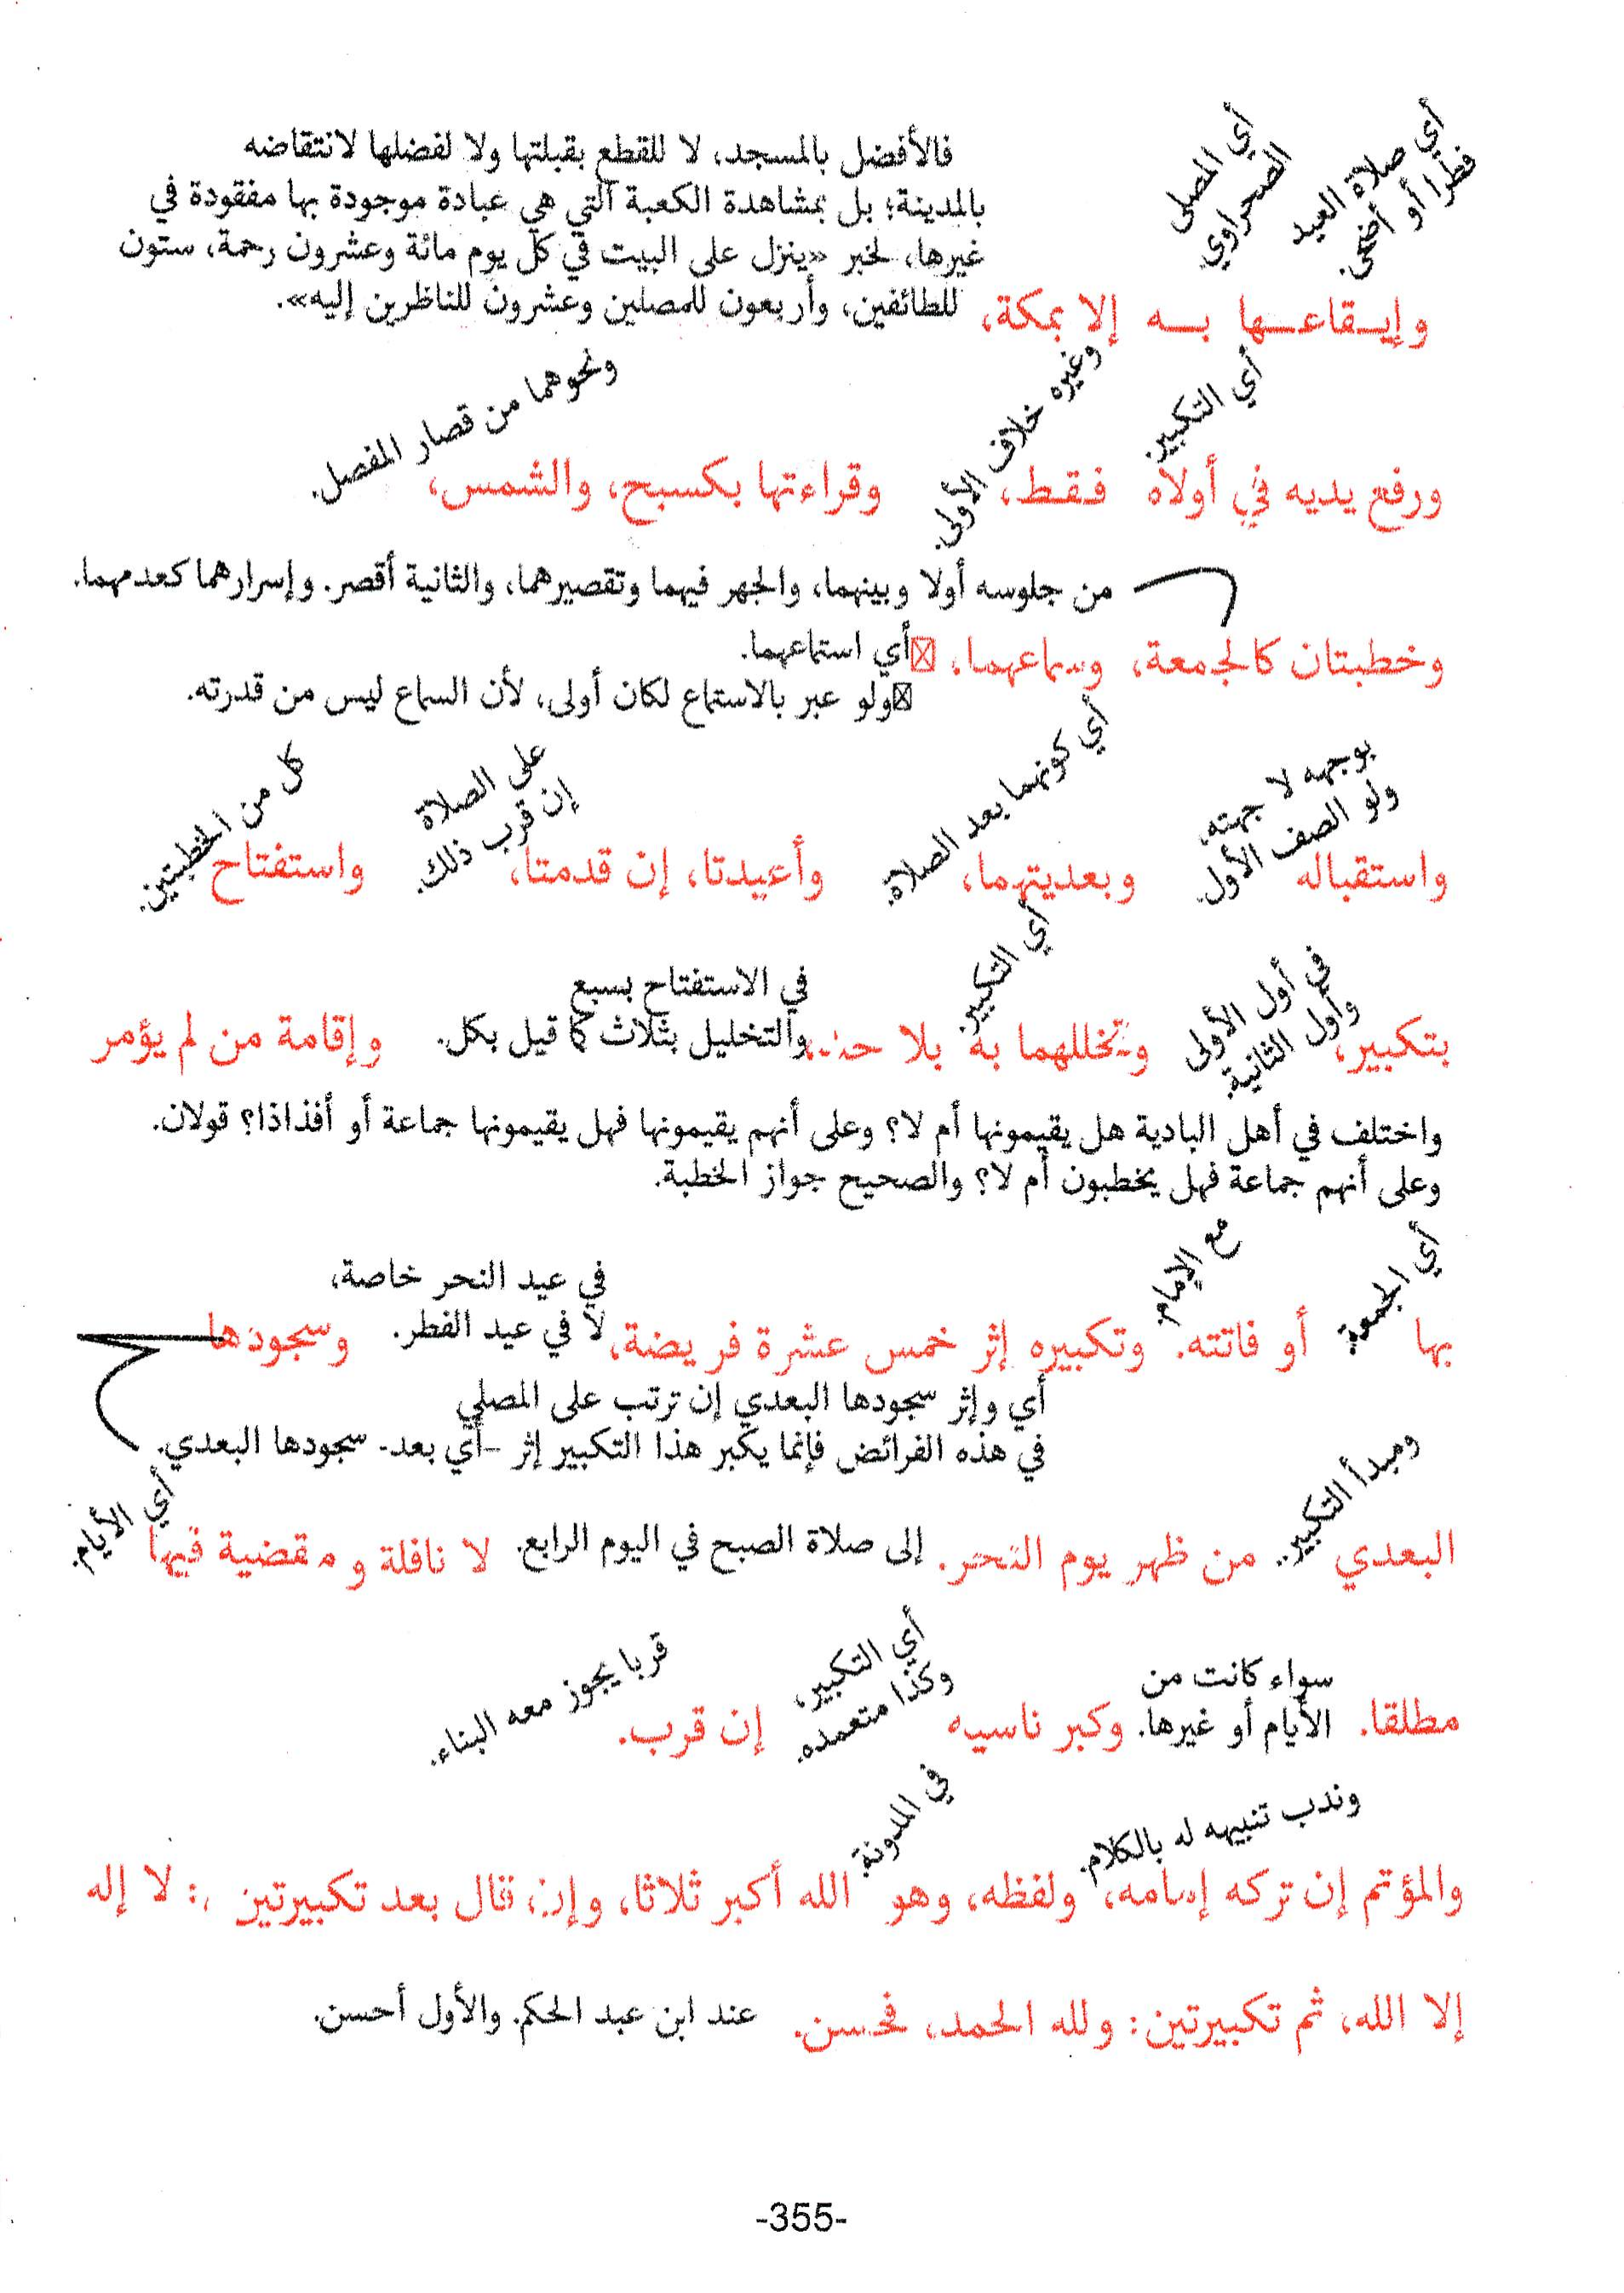 أي صلاة العيد
فطرا أو أضحى.
أي المصلى
الصحراوي
فالأفضل بالمسجد، لا للقطع بقبلتها ولا لفضلها لانتقاضه
بالمدينة؛ بل بمشاهدة الكعبة التي هي عبادة موجودة بها مفقودة في
غيرها، لخبر «ينزل على البيت في كل يوم مائة وعشرون رحمة، ستون
للطائفين، وأربعون للمصلين وعشرون للناظرين إليه».
وإيقاعها به إلا بمكة،
أي التكبير.
وغيره خلاف الأولى.
ونحوهما من قصار المفصل.
ورفع يديه في أولاه فقط، وقراءتها بكسبح، والشمس،
من جلوسه أولا وبينهما، والجهر فيهما وتقصيرهما، والثانية أقصر. وإسرارهما كعدمهما.
وخطبتان كالجمعة، وسماعهما، أي استماعهما.
ولو عبر بالاستماع لكان أولى، لأن السماع ليس من قدرته.
بوجهه لا جهته.
ولو الصف الأول.
أي كونهما بعد الصلاة.
على الصلاة
إن قرب ذلك.
كل من الخطبتين.
واستقباله وبعديتهما، وأعيدتا، إن قدمتا، واستفتاح
في أول الأولى
وأول الثانية.
أي التكبير.
في الاستفتاح بسبع
والتخليل بثلاث كما قيل بكل.
بتكبير، وتخللهما به بلا حد، وإقامة من لم يؤمر
واختلف في أهل البادية هل يقيمونها أم لا؟ وعلى أنهم يقيمونها فهل يقيمونها جماعة أو أفذاذا؟ قولان.
وعلى أنهم جماعة فهل يخطبون أم لا؟ والصحيح جواز الخطبة.
أي الجمعة.
مع الإمام.
في عيد النحر خاصة،
لا في عيد الفطر.
بها أو فاتته. وتكبيره إثر خمس عشرة فريضة، وسجودها
أي وإثر سجودها البعدي إن ترتب على المصلي
في هذه الفرائض فإنما يكبر هذا التكبير إثر -أي بعد- سجودها البعدي.
ومبدأ التكبير..
أي الأيام.
البعدي من ظهر يوم النحر. إلى صلاة الصبح في اليوم الرابع. لا نافلة ومقضية فيها
سواء كانت من
الأيام أو غيرها.
أي التكبير،
وكذا متعمده.
قربا يجوز معه البناء.
مطلقا. وكبر ناسيه إن قرب.
وندب تنبيهه له بالكلام.
في المدونة.
والمؤتم إن تركه إمامه، ولفظه، وهو الله أكبر ثلاثا، وإن قال بعد تكبيرتين: لا إله
إلا الله، ثم تكبيرتين: ولله الحمد، فحسن. عند ابن عبد الحكم. والأول أحسن.
-355-